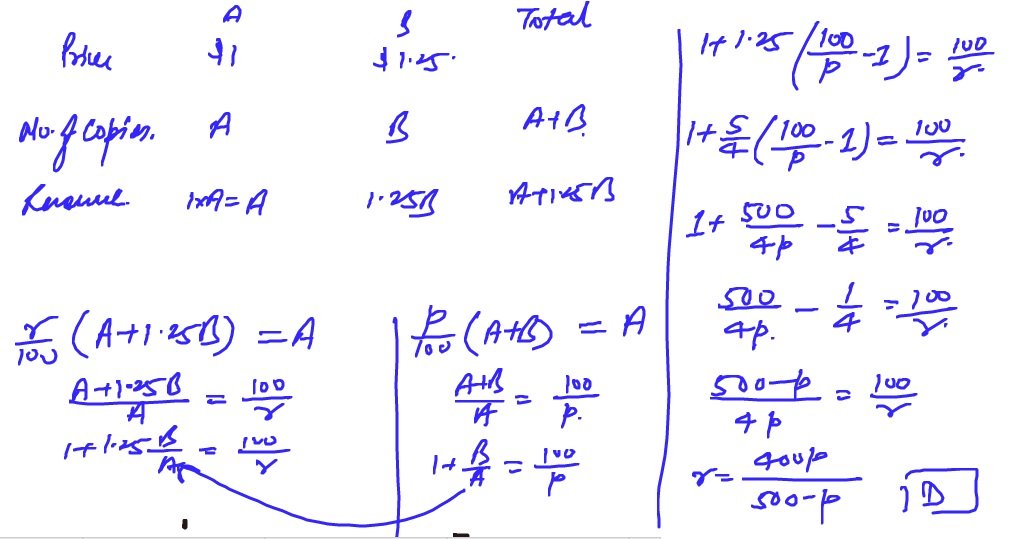 A B Total
Price $1 $1.25.
No. of copies. A B A+B.
Revenue. 1×A=A 1.25B A+1.25B
r/100 (A+1.25B) = A
(A+1.25B)/A = 100/r
1+1.25 B/A = 100/r
p/100 (A+B) = A
(A+B)/A = 100/p.
1+ B/A = 100/p
1+1.25 (100/p -1) = 100/r.
1+ 5/4 (100/p -1) = 100/r.
1+ 500/4p - 5/4 = 100/r.
500/4p. - 1/4 = 100/r.
(500-p)/4p = 100/r
r= 400p/(500-p) D